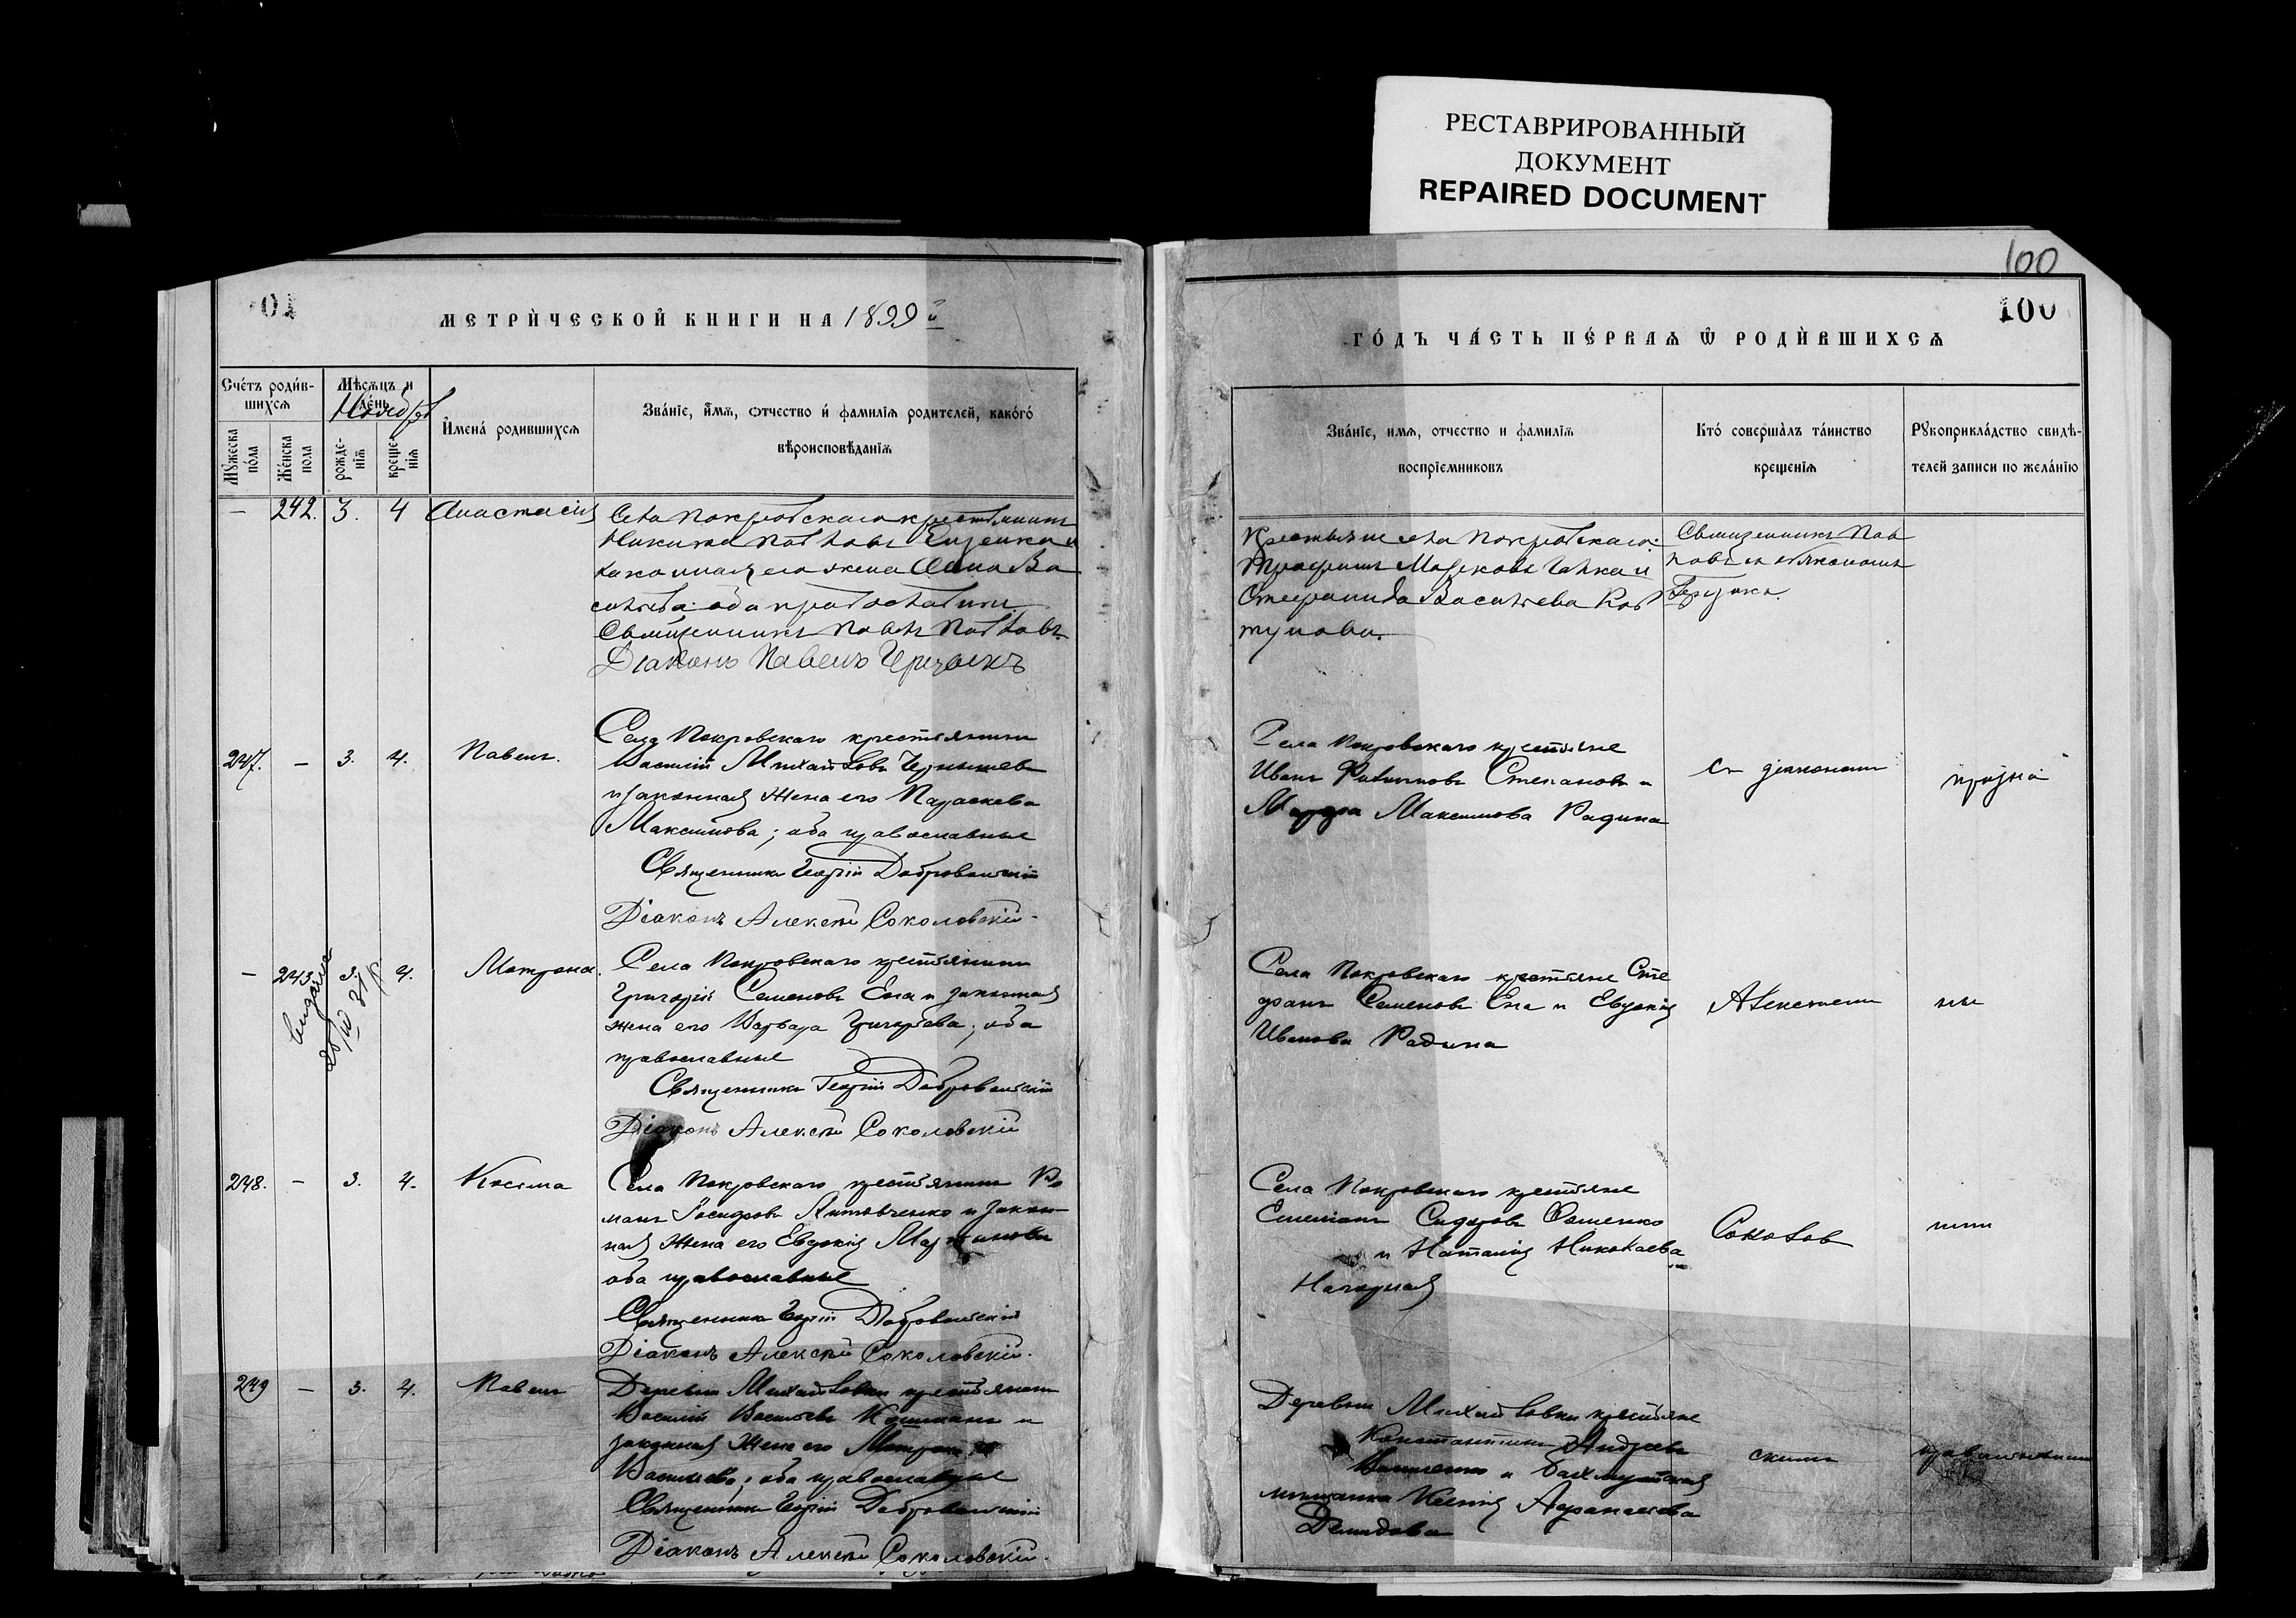 РЕСТАВРИРОВАННЫЙ
ДОКУМЕНТ
REPAIRED DOCUMENT
100
100
01
МЕТРИ́ЧЕСКОЙ КНИГИ НА 1899 й
ГО́ДЪ ЧА́СТЬ ПЕ́РВАѦ Ѿ РОДИ́ВШИХСѦ
Сче́тъ роди́в-
шихсѧ
Мѣсѧцъ и
де́нь
Ноябрь
Мꙋжеска
по́ла
Же́нска
пола
рожде-
нїѧ
креще-
нїѧ
И҆мена́ родившихсѧ
Зва́нїе, и҆́мѧ, ѻтчество и҆ фамилїѧ родителей, како́го
вѣроисповѣданїѧ
Зва́нїе, имѧ, отчество и фамилїѧ
воспрїемниковъ
Кто́ соверша̀лъ та́инство
крещенїѧ
Рꙋкоприкла́дство свидѣ-
телей записи по жела́нїю
— 242. 3. 4 Анастасія
Села Покровскаго крестьянинъ
Никита Павловъ и
законная его жена Анна Ва
сильева оба православны.
Священникъ Павелъ Павловъ.
Діаконъ Павелъ
Крестьяне села Покровскаго:
Трофимъ Марковъ и
Стефанида Васильева Ков
тунова.
Священникъ Пав
Павловъ съ діакономъ
247. — 3. 4. Павелъ.
Села Покровскаго крестьянинъ
Василій Михайловъ Чернышев
и законная жена его Параскева
Максимова; оба православные
Священникъ Георгій Добровольскій
Діаконъ Алексѣй Соколовскій.
Села Покровскаго крестьяне
Иванъ Филиповъ Степановъ и
Марфа Максимова Радина
Съ діакономъ
— 243. 3. 4. Матрона.
Села Покровскаго крестьянинъ
Григорій Семеновъ Ена и законная
жена его Варвара Григорьева; оба
православные
Священникъ Георгій Добровольскій
Діаконъ Алексѣй Соколовскій
Села Покровскаго крестьяне Сте
фанъ Семеновъ Ена и Евдокія
Иванова Радина
Алексѣемъ
248. — 3. 4. Косьма
Села Покровскаго крестьянинъ Ро
манъ Іосифовъ Литовченко и закон
ная жена его Евдокія Мартинова
оба православные
Священникъ Георгій Добровольскій
Діаконъ Алексѣй Соколовскій.
Села Покровскаго крестьяне
Емеліанъ Сидоровъ Фоменко
и Наталія Николаева
Нагорная
Соколов
249 — 3. 4. Павелъ
Деревни Михайловки крестьянинъ
Василій Васильевъ и
законная жена его Матрона
Васильева; оба православные
Священникъ Георгій Добровольскій
Діаконъ Алексѣй Соколовскій.
Деревни Михайловки крестьяне
Константинъ Андреевъ
и Бахмутская
мѣщанка Ксенія Афанасіева
Демидова
скимъ